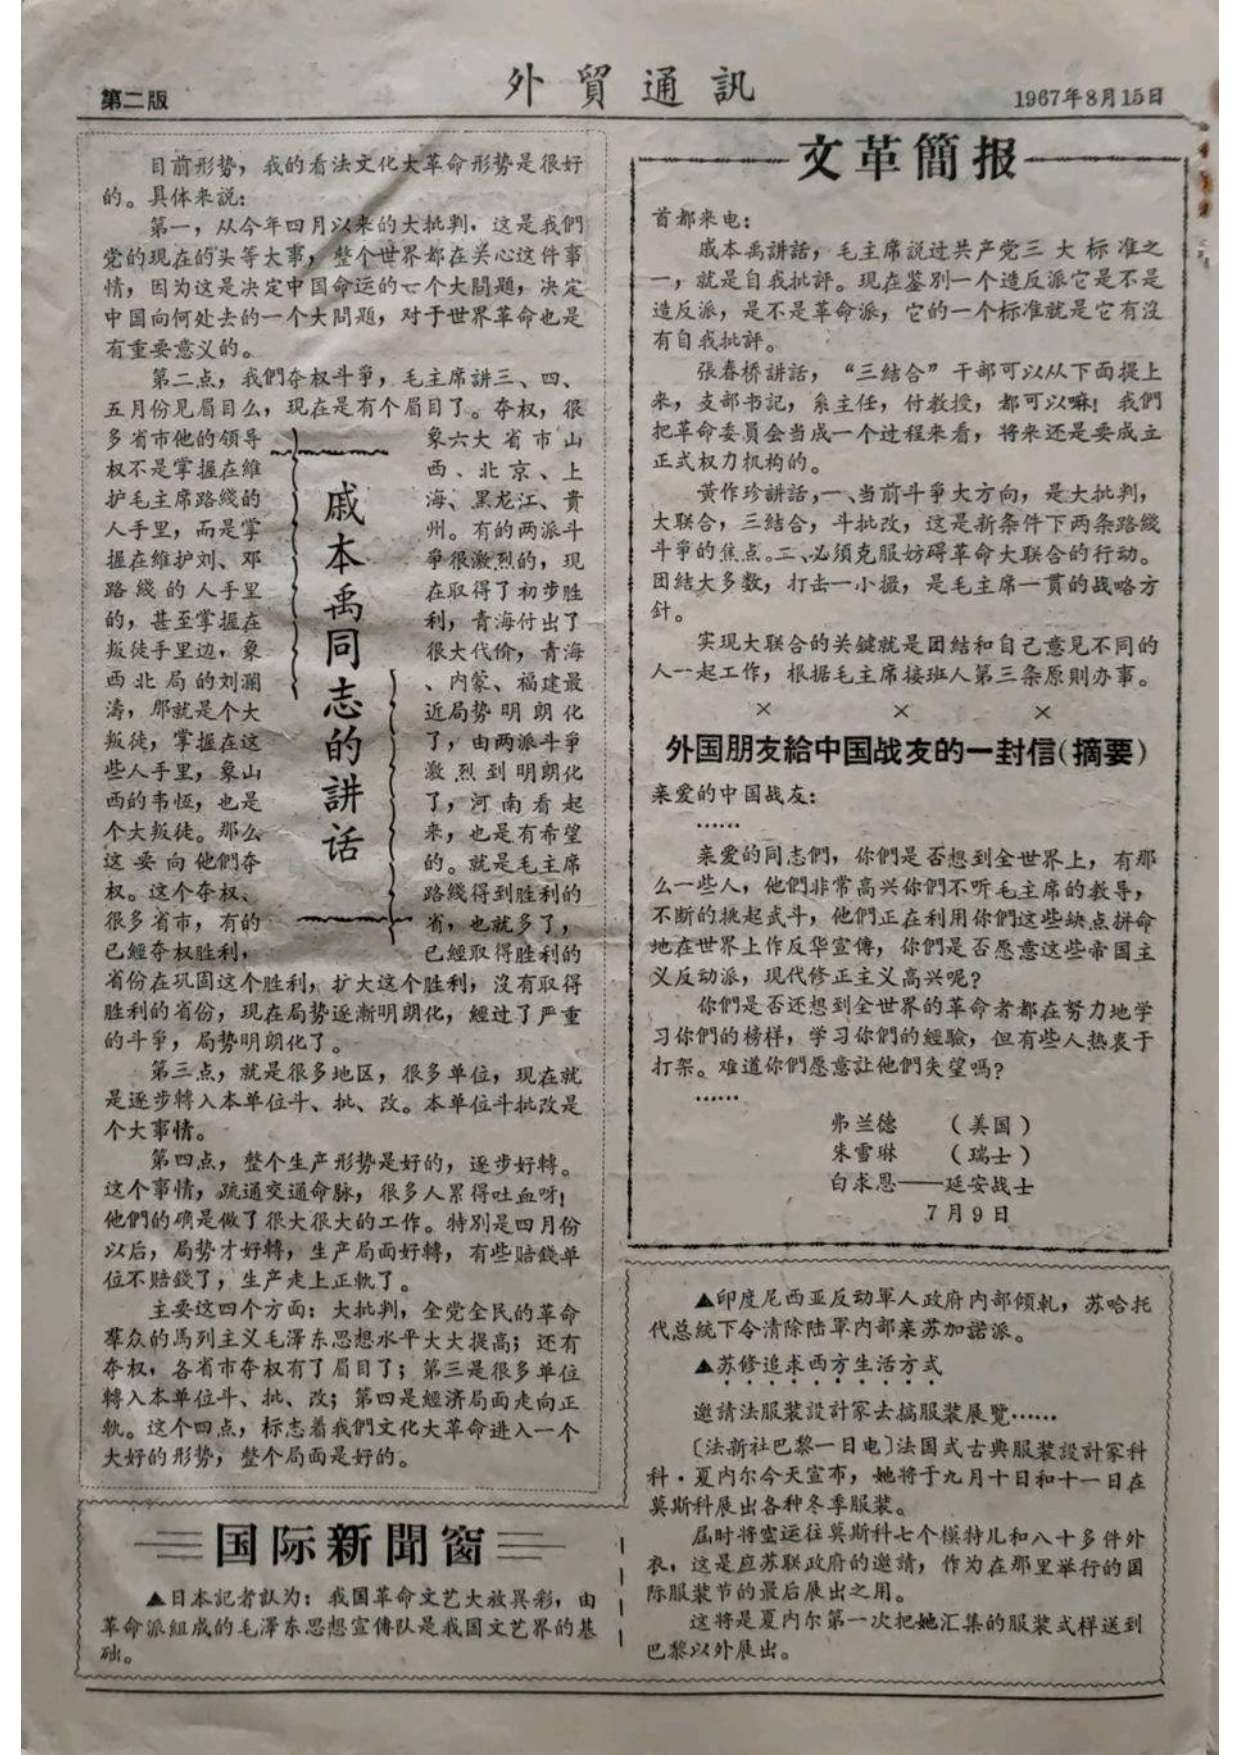 第二版
外貿通訊
1967年8月15日
目前形势，我的看法文化大革命形势是很好
的。具体来说：
第一，从今年四月以来的大批判，这是我們
党的现在的头等大事，整个世界都在关心这件事
情，因为这是决定中国命运的一个大問題，决定
中国向何处去的一个大問題，对于世界革命也是
有重要意义的。
第二点，我們夺权斗爭，毛主席講三、四、
五月份见眉目么，现在是有个眉目了。夺权，很
多省市他的领导
权不是掌握在維
护毛主席路綫的
人手里，而是掌
握在維护刘、邓
路綫的人手里
的，甚至掌握在
叛徒手里边，象
西北局的刘瀾
涛，那就是个大
叛徒，掌握在这
些人手里，象山
西的韦恆，也是
个大叛徒。那么
这要向他們夺
权。这个夺权、
很多省市，有的
已經夺权胜利，
戚本禹同志的讲话
象六大省市山
西、北京、上
海、黑龙江、貴
州。有的两派斗
爭很激烈的，现
在取得了初步胜
利，青海付出了
很大代价，青海
、内蒙、福建最
近局势明朗化
了，由两派斗爭
激烈到明朗化
了，河南看起
来，也是有希望
的。就是毛主席
路綫得到胜利的
省，也就多了，
已經取得胜利的
省份在巩固这个胜利，扩大这个胜利；沒有取得
胜利的省份，现在局势逐漸明朗化，經过了严重
的斗爭，局势明朗化了。
第三点，就是很多地区，很多单位，现在就
是逐步轉入本单位斗、批、改。本单位斗批改是
个大事情。
第四点，整个生产形势是好的，逐步好轉。
这个事情，疏通交通命脉，很多人累得吐血呀！
他們的确是做了很大很大的工作。特别是四月份
以后，局势才好轉，生产局面好轉，有些賠錢单
位不賠錢了，生产走上正軌了。
主要这四个方面：大批判，全党全民的革命
羣众的馬列主义毛澤东思想水平大大提高；还有
夺权，各省市夺权有了眉目了；第三是很多单位
轉入本单位斗、批、改；第四是經济局面走向正
軌。这个四点，标志着我們文化大革命进入一个
大好的形势，整个局面是好的。
文革簡报
首都来电：
戚本禹讲話，毛主席説过共产党三大标准之
一，就是自我批評。现在鉴别一个造反派它是不是
造反派，是不是革命派，它的一个标准就是它有沒
有自我批評。
張春桥讲話，“三結合”干部可以从下面提上
来，支部书記，系主任，付教授，都可以嘛！我們
把革命委員会当成一个过程来看，将来还是要成立
正式权力机构的。
黄作珍讲話，一、当前斗爭大方向，是大批判，
大联合，三結合，斗批改，这是新条件下两条路綫
斗爭的焦点。二、必須克服妨碍革命大联合的行动。
团結大多数，打击一小撮，是毛主席一貫的战略方
針。
实现大联合的关鍵就是团結和自己意见不同的
人一起工作，根据毛主席接班人第三条原則办事。
× × ×
外国朋友給中国战友的一封信（摘要）
亲爱的中国战友：
……
亲爱的同志們，你們是否想到全世界上，有那
么一些人，他們非常高兴你們不听毛主席的教导，
不断的挑起武斗，他們正在利用你們这些缺点拼命
地在世界上作反华宣傳，你們是否愿意这些帝国主
义反动派，现代修正主义高兴呢？
你們是否还想到全世界的革命者都在努力地学
习你們的榜样，学习你們的經驗，但有些人热衷于
打架。难道你們愿意让他們失望嗎？
……
弗兰德 （美国）
朱雪琳 （瑞士）
白求恩——延安战士
7月9日
国际新聞窗
▲日本記者訟为：我国革命文艺大放異彩，由
革命派組成的毛澤东思想宣傳队是我国文艺界的基
础。
▲印度尼西亚反动軍人政府内部傾軋，苏哈托
代总統下令清除陆軍内部亲苏加諾派。
▲苏修追求西方生活方式
邀請法服裝設計家去搞服裝展覽……
〔法新社巴黎一日电〕法国式古典服裝設計家科
科·夏内尔今天宣布，她将于九月十日和十一日在
莫斯科展出各种冬季服裝。
屆时将空运往莫斯科七个模特儿和八十多件外
衣，这是应苏联政府的邀請，作为在那里举行的国
际服裝节的最后展出之用。
这将是夏内尔第一次把她汇集的服裝式样送到
巴黎以外展出。